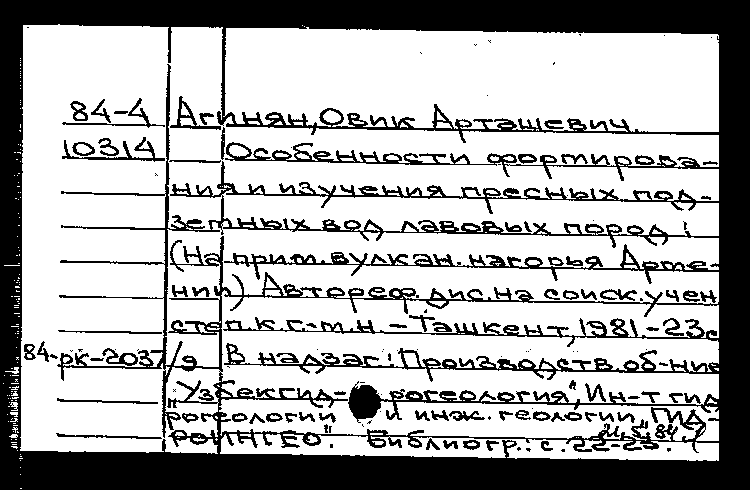 84-4 Агинян, Овик Арташевич.
10314 Особенности формирова-
ния и изучения пресных под-
земных вод лавовых пород:
(На прим. вулкан. нагорья Арме-
нии) Автореф. дис. на соиск. учен
степ. к. г.-м. н. - Ташкент, 1981. - 23с
84-рк-2037/9 В надзаг: Производств. об-ние
"Узбекгид-рогеология", Ин-т гид
рогеологии и инж. геологии, ГИД-
РОИНГЕО". Библиогр.: с. 22-23.